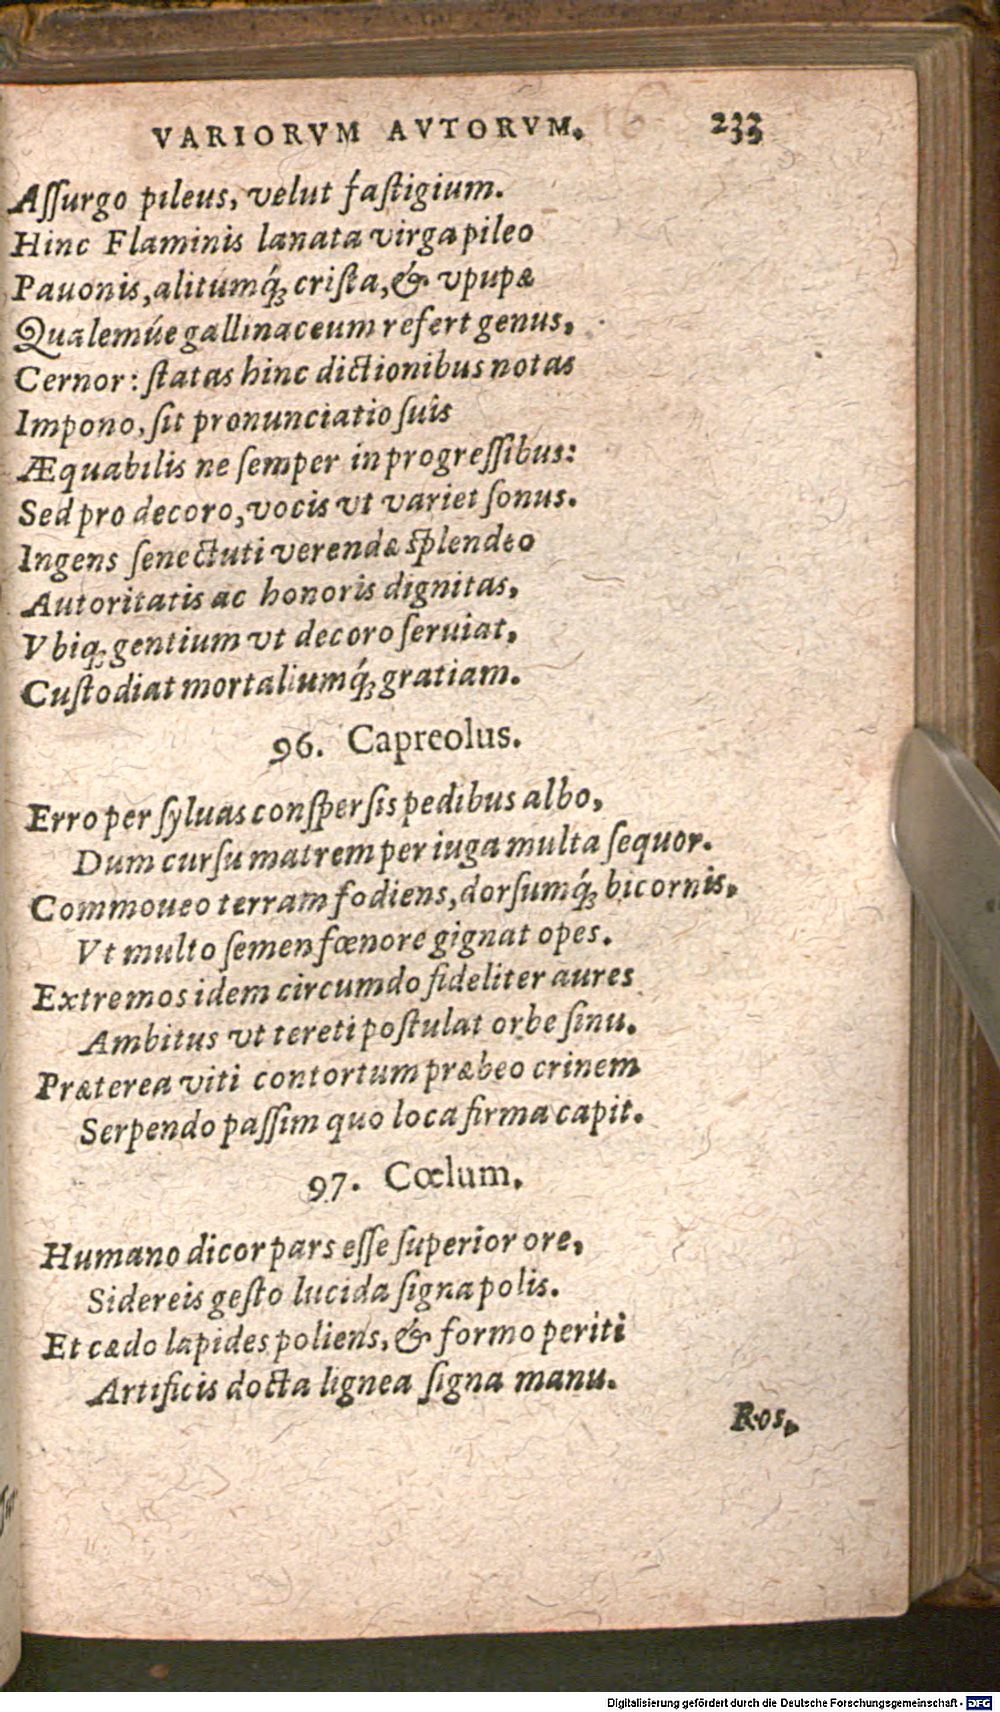 VARIORVM AVTORVM. 233
Aſſurgo pileus, velut faſtigium.
Hinc Flaminis lanata virga pileo
Pauonis, alitumq́ꝫ criſta, & vpupæ
Qualemúe gallinaceum refert genus,
Cernor: ſtatas hinc dictionibus notas
Impono, ſit pronunciatio ſuis
Æquabilis ne ſemper in progreſſibus:
Sed pro decoro, vocis vt variet ſonus.
Ingens ſenectuti verendæ ſplendeo
Autoritatis ac honoris dignitas,
Vbiqꝫ gentium vt decoro ſeruiat,
Cuſtodiat mortaliumq́ꝫ gratiam.
96. Capreolus.
Erro per ſyluas conſperſis pedibus albo,
Dum curſu matrem per iuga multa ſequor.
Commoueo terram fodiens, dorſumq́ꝫ bicornis,
Vt multo ſemen fœnore gignat opes.
Extremos idem circumdo fideliter aures
Ambitus vt tereti poſtulat orbe ſinu.
Præterea viti contortum præbeo crinem
Serpendo paſſim quo loca firma capit.
97. Cœlum.
Humano dicor pars eſſe ſuperior ore,
Sidereis geſto lucida ſigna polis.
Et cædo lapides poliens, & formo periti
Artificis docta lignea ſigna manu.
Ros,
Digitalisierung gefördert durch die Deutsche Forschungsgemeinschaft - DFG